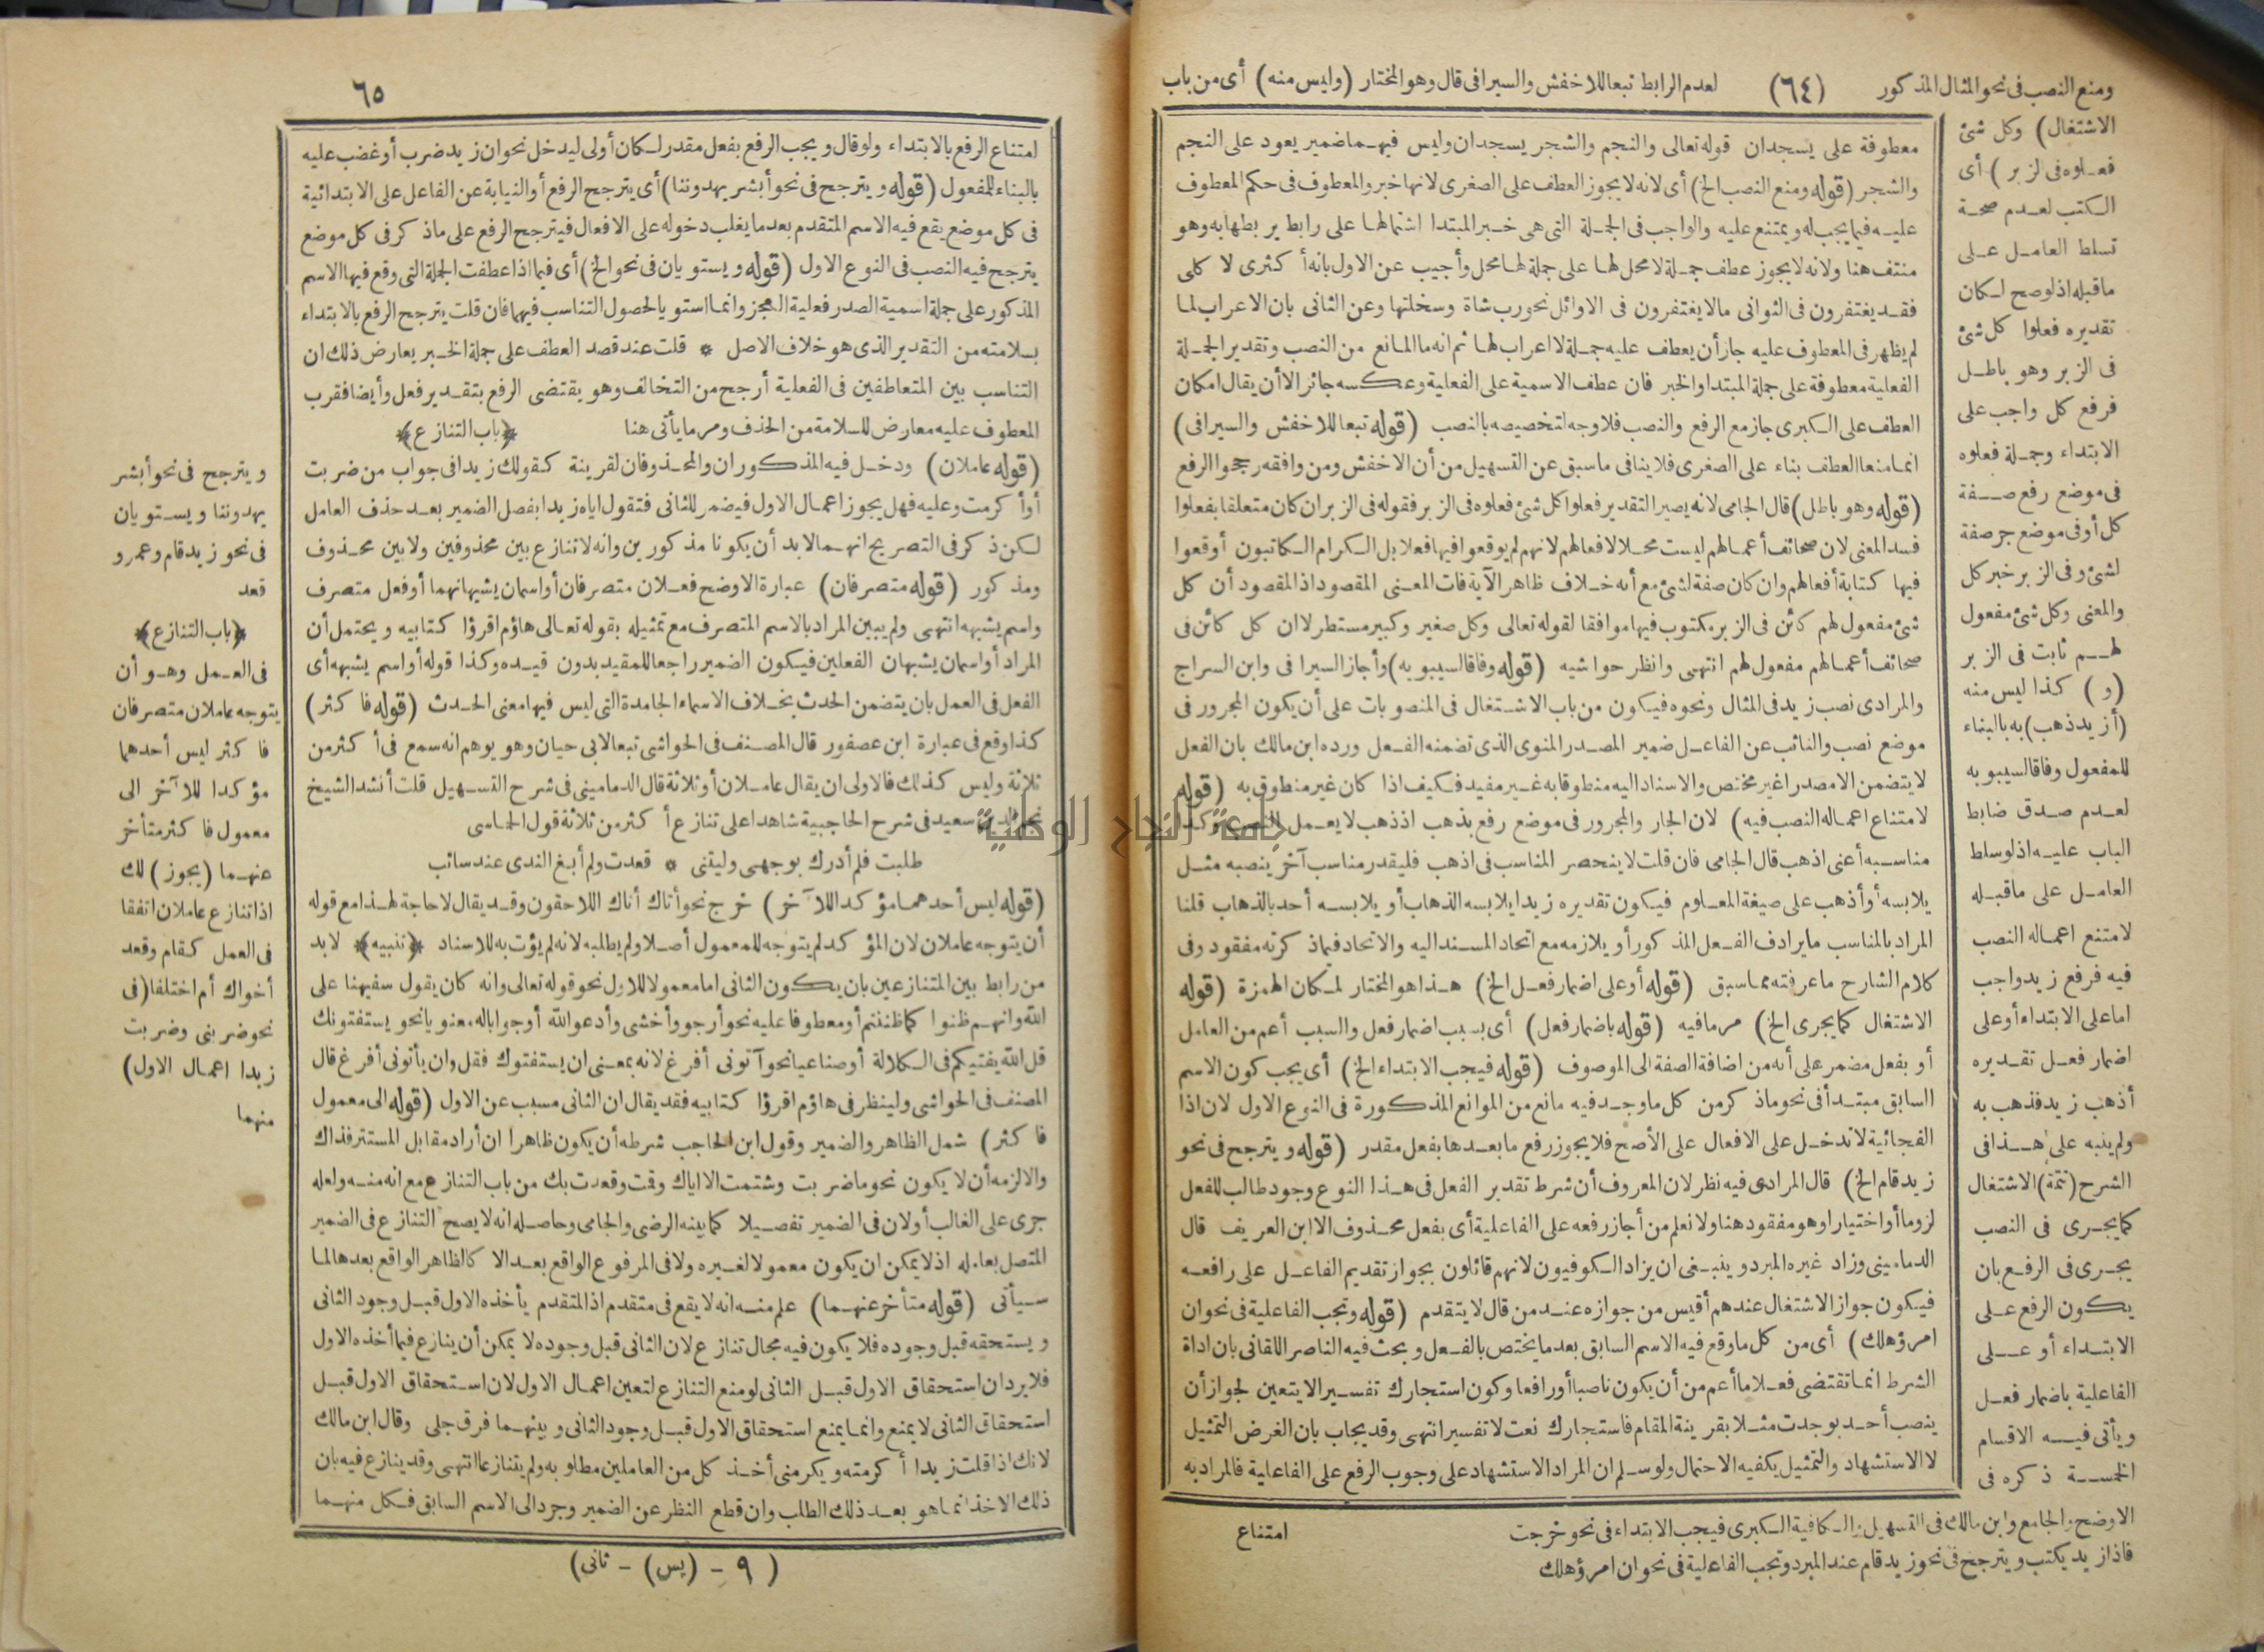 ومنع النصب فى نحو المثال المذكور (٦٤) لعدم الرابط تبعا للاخفش والسيرافى قال وهو المختار (وليس منه) أى من باب
الاشتغال) وكل شئ
فعلوه فى الزبر) أى
الكتب لعدم صحة
تسلط العامل على
ماقبله اذلو صح لكان
تقديره فعلوا كل شئ
فى الزبر وهو باطل
فرفع كل واجب على
الابتداء وجملة فعلوه
فى موضع رفع صفة
كل أو فى موضع جر صفة
لشئ وفى الزبر خبر كل
والمعنى وكل شئ مفعول
لهم ثابت فى الزبر
(و) كذا ليس منه
(أزيد ذهب) به بالبناء
للمفعول وفاقا لسيبويه
لعدم صدق ضابط
الباب عليه اذلو سلط
العامل على ماقبله
لامتنع اعماله النصب
فيه فرفع زيد واجب
اما على الابتداء أو على
اضمار فعل تقديره
أذهب زيد فذهب به
ولم ينبه على هذا فى
الشرح (تتمة) الاشتغال
كما يجرى فى النصب
يجرى فى الرفع بان
يكون الرفع على
الابتداء أو على
الفاعلية باضمار فعل
ويأتى فيه الاقسام
الخمسة ذكره فى
الاوضح والجامع وابن مالك فى التسهيل والكافية الكبرى فيجب الابتداء فى نحو خرجت
فاذا زيد يكتب ويترجح فى نحو زيد قام عند المبرد وتجب الفاعلية فى نحو ان امرؤ هلك
معطوفة على يسجدان قوله تعالى والنجم والشجر يسجدان وليس فيهما ضمير يعود على النجم
والشجر (قوله ومنع النصب الخ) أى لانه لا يجوز العطف على الصغرى لانها خبر والمعطوف فى حكم المعطوف
عليه فيما يجب له ويمتنع عليه والواجب فى الجملة التى هى خبر المبتدا اشتمالها على رابط يربطها به وهو
منتف هنا ولانه لا يجوز عطف جملة لا محل لها على جملة لها محل وأجيب عن الاول بانه أكثرى لا كلى
فقد يغتفرون فى الثوانى مالا يغتفرون فى الاوائل نحو رب شاة وسخلتها وعن الثانى بان الاعراب لما
لم يظهر فى المعطوف عليه جاز أن يعطف عليه جملة لا اعراب لها ثم انه ما المانع من النصب وتقدير الجملة
الفعلية معطوفة على جملة المبتدا والخبر فان عطف الاسمية على الفعلية وعكسه جائز الا أن يقال امكان
العطف على الكبرى جاز مع الرفع والنصب فلا وجه لتخصيصه بالنصب (قوله تبعا للاخفش والسيرافى)
انما منعا العطف بناء على الصغرى فلا ينافى ماسبق عن التسهيل من أن الاخفش ومن وافقه رجحوا الرفع
(قوله وهو باطل) قال الجامى لانه يصير التقدير فعلوا كل شئ فعلوه فى الزبر فقوله فى الزبر ان كان متعلقا بفعلوا
فسد المعنى لان صحائف أعمالهم ليست محلا لافعالهم لانهم لم يوقعوا فيها فعلا بل الكرام الكاتبون أوقعوا
فيها كتابة أفعالهم وان كان صفة لشئ مع أنه خلاف ظاهر الآية فات المعنى المقصود اذ المقصود أن كل
شئ مفعول لهم كائن فى الزبر مكتوب فيها موافقا لقوله تعالى وكل صغير وكبير مستطر لا ان كل كائن فى
صحائف أعمالهم مفعول لهم انتهى وانظر حواشيه (قوله وفاقا لسيبويه) وأجاز السيرافى وابن السراج
والمرادى نصب زيد فى المثال ونحوه فيكون من باب الاشتغال فى المنصوبات على أن يكون المجرور فى
موضع نصب والنائب عن الفاعل ضمير المصدر المنوى الذى تضمنه الفعل ورده ابن مالك بان الفعل
لا يتضمن الا مصدرا غير مختص والاسناد اليه منطوقا به غير مفيد فكيف اذا كان غير منطوق به (قوله
لامتناع اعماله النصب فيه) لان الجار والمجرور فى موضع رفع بذهب اذ ذهب لا يعمل النصب وكذا
مناسبه أعنى اذهب قال الجامى فان قلت لا ينحصر المناسب فى اذهب فليقدر مناسب آخر ينصبه مثل
يلابسه أو أذهب على صيغة المعلوم فيكون تقديره زيدا يلابسه الذهاب أو يلابسه أحد بالذهاب قلنا
المراد بالمناسب ما يرادف الفعل المذكور أو يلازمه مع اتحاد المسند اليه والاتحاد فيما ذكرته مفقود وفى
كلام الشارح ما عرفته مما سبق (قوله أو على اضمار فعل الخ) هذا هو المختار لمكان الهمزة (قوله
الاشتغال كما يجرى الخ) مر ما فيه (قوله باضمار فعل) أى بسبب اضمار فعل والسبب أعم من العامل
أو بفعل مضمر على أنه من اضافة الصفة الى الموصوف (قوله فيجب الابتداء الخ) أى يجب كون الاسم
السابق مبتدأ فى نحو ماذكر من كل ما وجد فيه مانع من الموانع المذكورة فى النوع الاول لان اذا
الفجائية لا تدخل على الافعال على الأصح فلا يجوز رفع ما بعدها بفعل مقدر (قوله ويترجح فى نحو
زيد قام الخ) قال المرادى فيه نظر لان المعروف أن شرط تقدير الفعل فى هذا النوع وجود طالب للفعل
لزوما أو اختيارا وهو مفقود هنا ولا نعلم من أجاز رفعه على الفاعلية أى بفعل محذوف الا ابن العريف قال
الدمامينى وزاد غيره المبرد وينبغى ان يزاد الكوفيون لانهم قائلون بجواز تقديم الفاعل على رافعه
فيكون جواز الاشتغال عندهم أقيس من جوازه عند من قال لا يتقدم (قوله وتجب الفاعلية فى نحو ان
امرؤ هلك) أى من كل ما وقع فيه الاسم السابق بعد ما يختص بالفعل وبحث فيه الناصر اللقانى بان اداة
الشرط انما تقتضى فعلا ما أعم من أن يكون ناصبا أو رافعا وكون استجارك تفسيرا لا يتعين لجواز أن
ينصب أحد بوجدت مثلا بقرينة المقام فاستجارك نعت لا تفسير انتهى وقد يجاب بان الغرض التمثيل
لا الاستشهاد والتمثيل يكفيه الاحتمال ولو سلم ان المراد الاستشهاد على وجوب الرفع على الفاعلية فالمراد به
امتناع
جامعة النجاح الوطنية
٦٥
امتناع الرفع بالابتداء ولو قال ويجب الرفع بفعل مقدر لكان أولى ليدخل نحو ان زيد ضرب أو غضب عليه
بالبناء للمفعول (قوله ويترجح فى نحو أبشر يهدوننا) أى يترجح الرفع أو النيابة عن الفاعل على الابتدائية
فى كل موضع يقع فيه الاسم المتقدم بعد ما يغلب دخوله على الافعال فيترجح الرفع على ماذكر فى كل موضع
يترجح فيه النصب فى النوع الاول (قوله ويستويان فى نحو الخ) أى فيما اذا عطفت الجملة التى وقع فيها الاسم
المذكور على جملة اسمية الصدر فعلية العجز وانما استويا لحصول التناسب فيهما فان قلت يترجح الرفع بالابتداء
بسلامته من التقدير الذى هو خلاف الاصل * قلت عند قصد العطف على جملة الخبر يعارض ذلك ان
التناسب بين المتعاطفين فى الفعلية أرجح من التخالف وهو يقتضى الرفع بتقدير فعل وأيضا فقرب
المعطوف عليه معارض للسلامة من الحذف ومر ما يأتى هنا ﴿باب التنازع﴾
(قوله عاملان) ودخل فيه المذكوران والمحذوفان لقرينة كقولك زيدا فى جواب من ضربت
أو أكرمت وعليه فهل يجوز اعمال الاول فيضمر للثانى فتقول اياه زيدا بفصل الضمير بعد حذف العامل
لكن ذكر فى التصريح انهما لابد أن يكونا مذكورين وانه لا تنازع بين محذوفين ولا بين محذوف
ومذكور (قوله متصرفان) عبارة الاوضح فعلان متصرفان أو اسمان يشبهانهما أو فعل متصرف
واسم يشبهه انتهى ولم يبين المراد بالاسم المتصرف مع تمثيله بقوله تعالى هاؤم اقرؤا كتابيه ويحتمل أن
المراد أو اسمان يشبهان الفعلين فيكون الضمير راجعا للمقيد بدون قيده وكذا قوله أو اسم يشبهه أى
الفعل فى العمل بان يتضمن الحدث بخلاف الاسماء الجامدة التى ليس فيها معنى الحدث (قوله فاكثر)
كذا وقع فى عبارة ابن عصفور قال المصنف فى الحواشى تبعا لابى حيان وهو يوهم انه سمع فى أكثر من
ثلاثة وليس كذلك فالاولى ان يقال عاملان أو ثلاثة قال الدمامينى فى شرح التسهيل قلت أنشد الشيخ
سعيد فى شرح الحاجبية شاهدا على تنازع أكثر من ثلاثة قول الحماسى
طلبت فلم أدرك بوجهى وليتنى * قعدت ولم أبغ الندى عند سائب
(قوله ليس أحدهما مؤكدا للآخر) خرج نحو أتاك أتاك اللاحقون وقد يقال لا حاجة لهذا مع قوله
أن يتوجه عاملان لان المؤكد لم يتوجه للمعمول أصلا ولم يطلبه لانه لم يؤت به للاسناد ﴿تنبيه﴾ لابد
من رابط بين المتنازعين بان يكون الثانى اما معمولا للاول نحو قوله تعالى وانه كان يقول سفيهنا على
الله وانهم ظنوا كما ظننتم أو معطوفا عليه نحو أرجو وأخشى وأدعو الله أو جوابا له معنويا نحو يستفتونك
قل الله يفتيكم فى الكلالة أو صناعيا نحو آتونى أفرغ لانه بمعنى ان يستفتوك فقل وان يأتونى أفرغ قال
المصنف فى الحواشى ولينظر فى هاؤم اقرؤا كتابيه فقد يقال ان الثانى مسبب عن الاول (قوله الى معمول
فاكثر) شمل الظاهر والضمير وقول ابن الحاجب شرطه أن يكون ظاهرا ان أراد مقابل المستتر فذاك
والا لزمه أن لا يكون نحو ماضربت وشتمت الا اياك وقت وقعدت بك من باب التنازع مع انه منه ولعله
جرى على الغالب أو لان فى الضمير تفصيلا كما بينه الرضى والجامى وحاصله انه لا يصح التنازع فى الضمير
المتصل بعامله اذ لا يمكن ان يكون معمولا لغيره ولا فى المرفوع الواقع بعد الا كالظاهر الواقع بعدها لما
سيأتى (قوله متأخر عنهما) علم منه انه لا يقع فى متقدم اذ المتقدم يأخذه الاول قبل وجود الثانى
ويستحقه قبل وجوده فلا يكون فيه مجال تنازع لان الثانى قبل وجوده لا يمكن أن ينازع فيما أخذه الاول
فلا يرد ان استحقاق الاول قبل الثانى لو منع التنازع لتعين اعمال الاول لان استحقاق الاول قبل
استحقاق الثانى لا يمنع وانما يمنع استحقاق الاول قبل وجود الثانى وبينهما فرق جلى وقال ابن مالك
لانك اذا قلت زيدا أكرمته ويكرمنى أخذ كل من العاملين مطلوبه ولم يتنازعا انتهى وقد ينازع فيه بان
ذلك الاخذ انما هو بعد ذلك الطلب وان قطع النظر عن الضمير وجردالى الاسم السابق فكل منهما
ويترجح فى نحو أبشر
يهدوننا ويستويان
فى نحو زيد قام وعمرو
قعد
﴿باب التنازع﴾
فى العمل وهو أن
يتوجه عاملان متصرفان
فاكثر ليس أحدهما
مؤكدا للآخر الى
معمول فاكثر متأخر
عنهما (يجوز) لك
اذا تنازع عاملان اتفقا
فى العمل كقام وقعد
أخواك أم اختلفا (فى
نحو ضربنى وضربت
زيدا اعمال الاول)
منهما
(٩ - (يس) - ثانى)